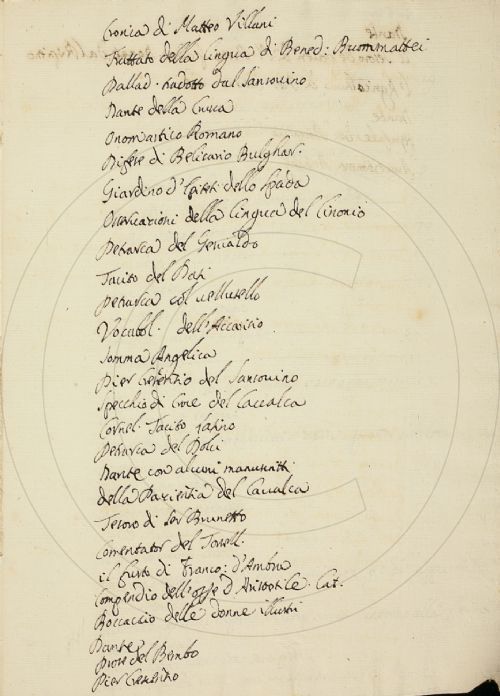 Cronia di Matteo Villani
Trattato della lingua di Bened: Buommattei
Pallad. tradotto dal Sansovino
Dante della Crusca
Onomastico Romano
Difese di Belisario Bulghar.
Giardino d'Epiteti dello Spada
Osservazioni della lingua del Cinonio
Petrarca del Gesualdo
Tacito del Dati
Petrarca col vellutello
Vocabol. dell'Accarisio
Somma Angelica
Pier Cresentio del Sansovino
Specchio di Croce del Cavalca
Cornel. Tacito latino
Petrarca del Dolci
Dante con alcuni manuscritti
della Pazientia del Cavalca
Tesoro di Ser Brunetto
Comentator del Torell.
il furto di Franco: d'Ambra
Compendio dell'opre d'Aristotile. Lat.
Boccaccio delle donne illustri
Dante
Prose del Bembo
Pier Cresentino